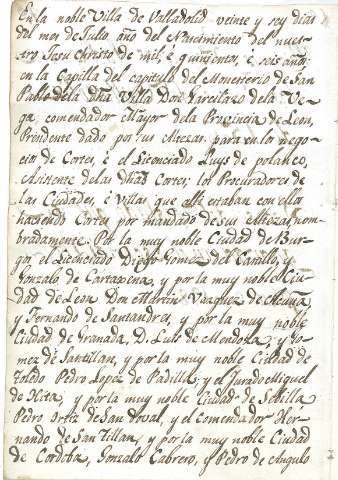 En la noble Villa de Valladolid veinte y sey dias
del mes de Julio año del Nascimiento del nues-
tro Jesu Christo de mil, é quinientos, é seis años;
en la Capilla del capitulo del Monesterio de San
Pablo dela dña Villa Don Garcilaso dela Ve-
ga comendador Mayor dela Provincia de Leon,
Presidente dado por sus Altezas para en los nego-
cios de Cortes, é el Licenciado Luys de polanco,
Asistente delas dñas Cortes; los Procuradores de
las Ciudades, é Villas que alli estaban con ellos
haciendo Cortes por mandado de sus Altezas, nom-
bradamente: Por la muy noble Ciudad de Bur-
gos el Licenciado Diego Gomez del Castillo, y
Gonzalo de Cartaxena, y por la muy noble Ciu-
dad de Leon Don Martin Vazquez de Acuña,
y Fernando de Santandres, y por la muy noble
Ciudad de Granada, D. Luis de Mendoza; y Go-
mez de Santillan, y por la muy noble Ciudad de
Toledo Pedro Lopez de Padilla; y el Jurado Miguel
de Hita, y por la muy noble Ciudad de Sevilla
Pedro Ortiz de Sandoval, y el comendador Her-
nando de Santillan, y por la muy noble Ciudad
de Cordoba, Gonzalo Cabrero, y Pedro de Angulo